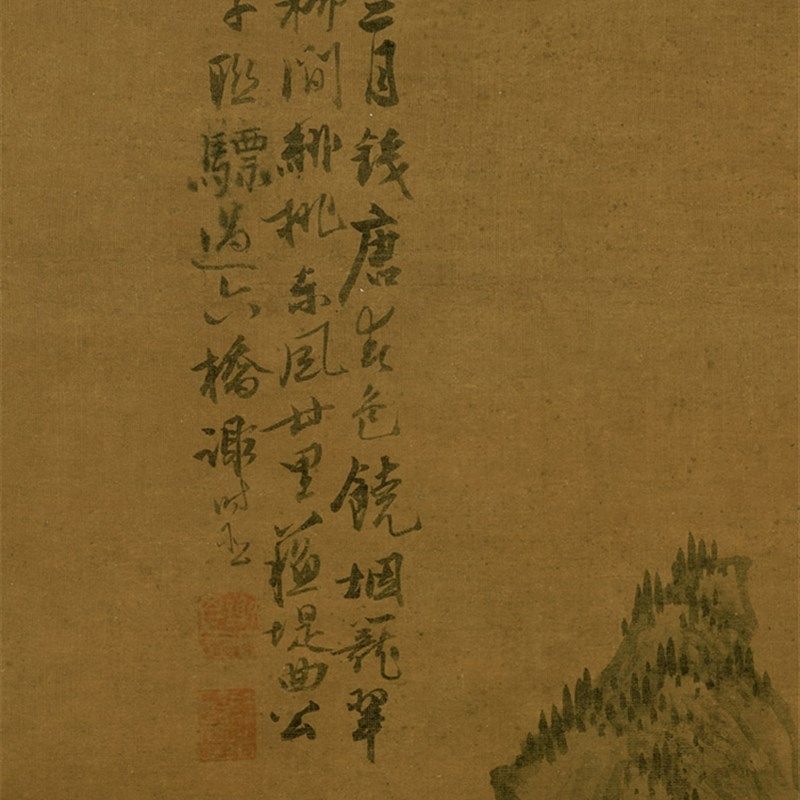 三月錢唐春色饒烟籠翠
柳間緋桃東風廿里蘇堤曲公
子聯驃過六橋謝時臣